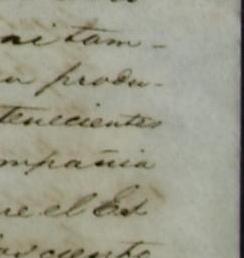 ni tam-
produ-
tenecientes
mpañia
re el Es
ciento